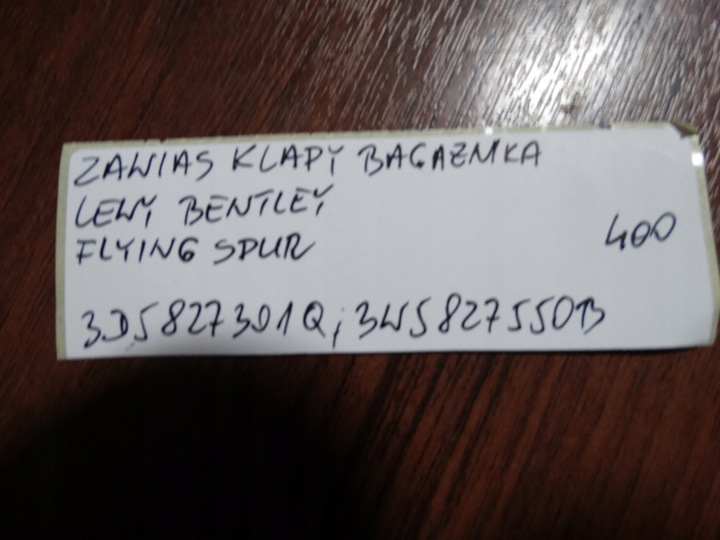 ZAWIAS KLAPY BAGAŻNIKA
LEWY BENTLEY
FLYING SPUR 400
3D5827301Q; 3W5827550B